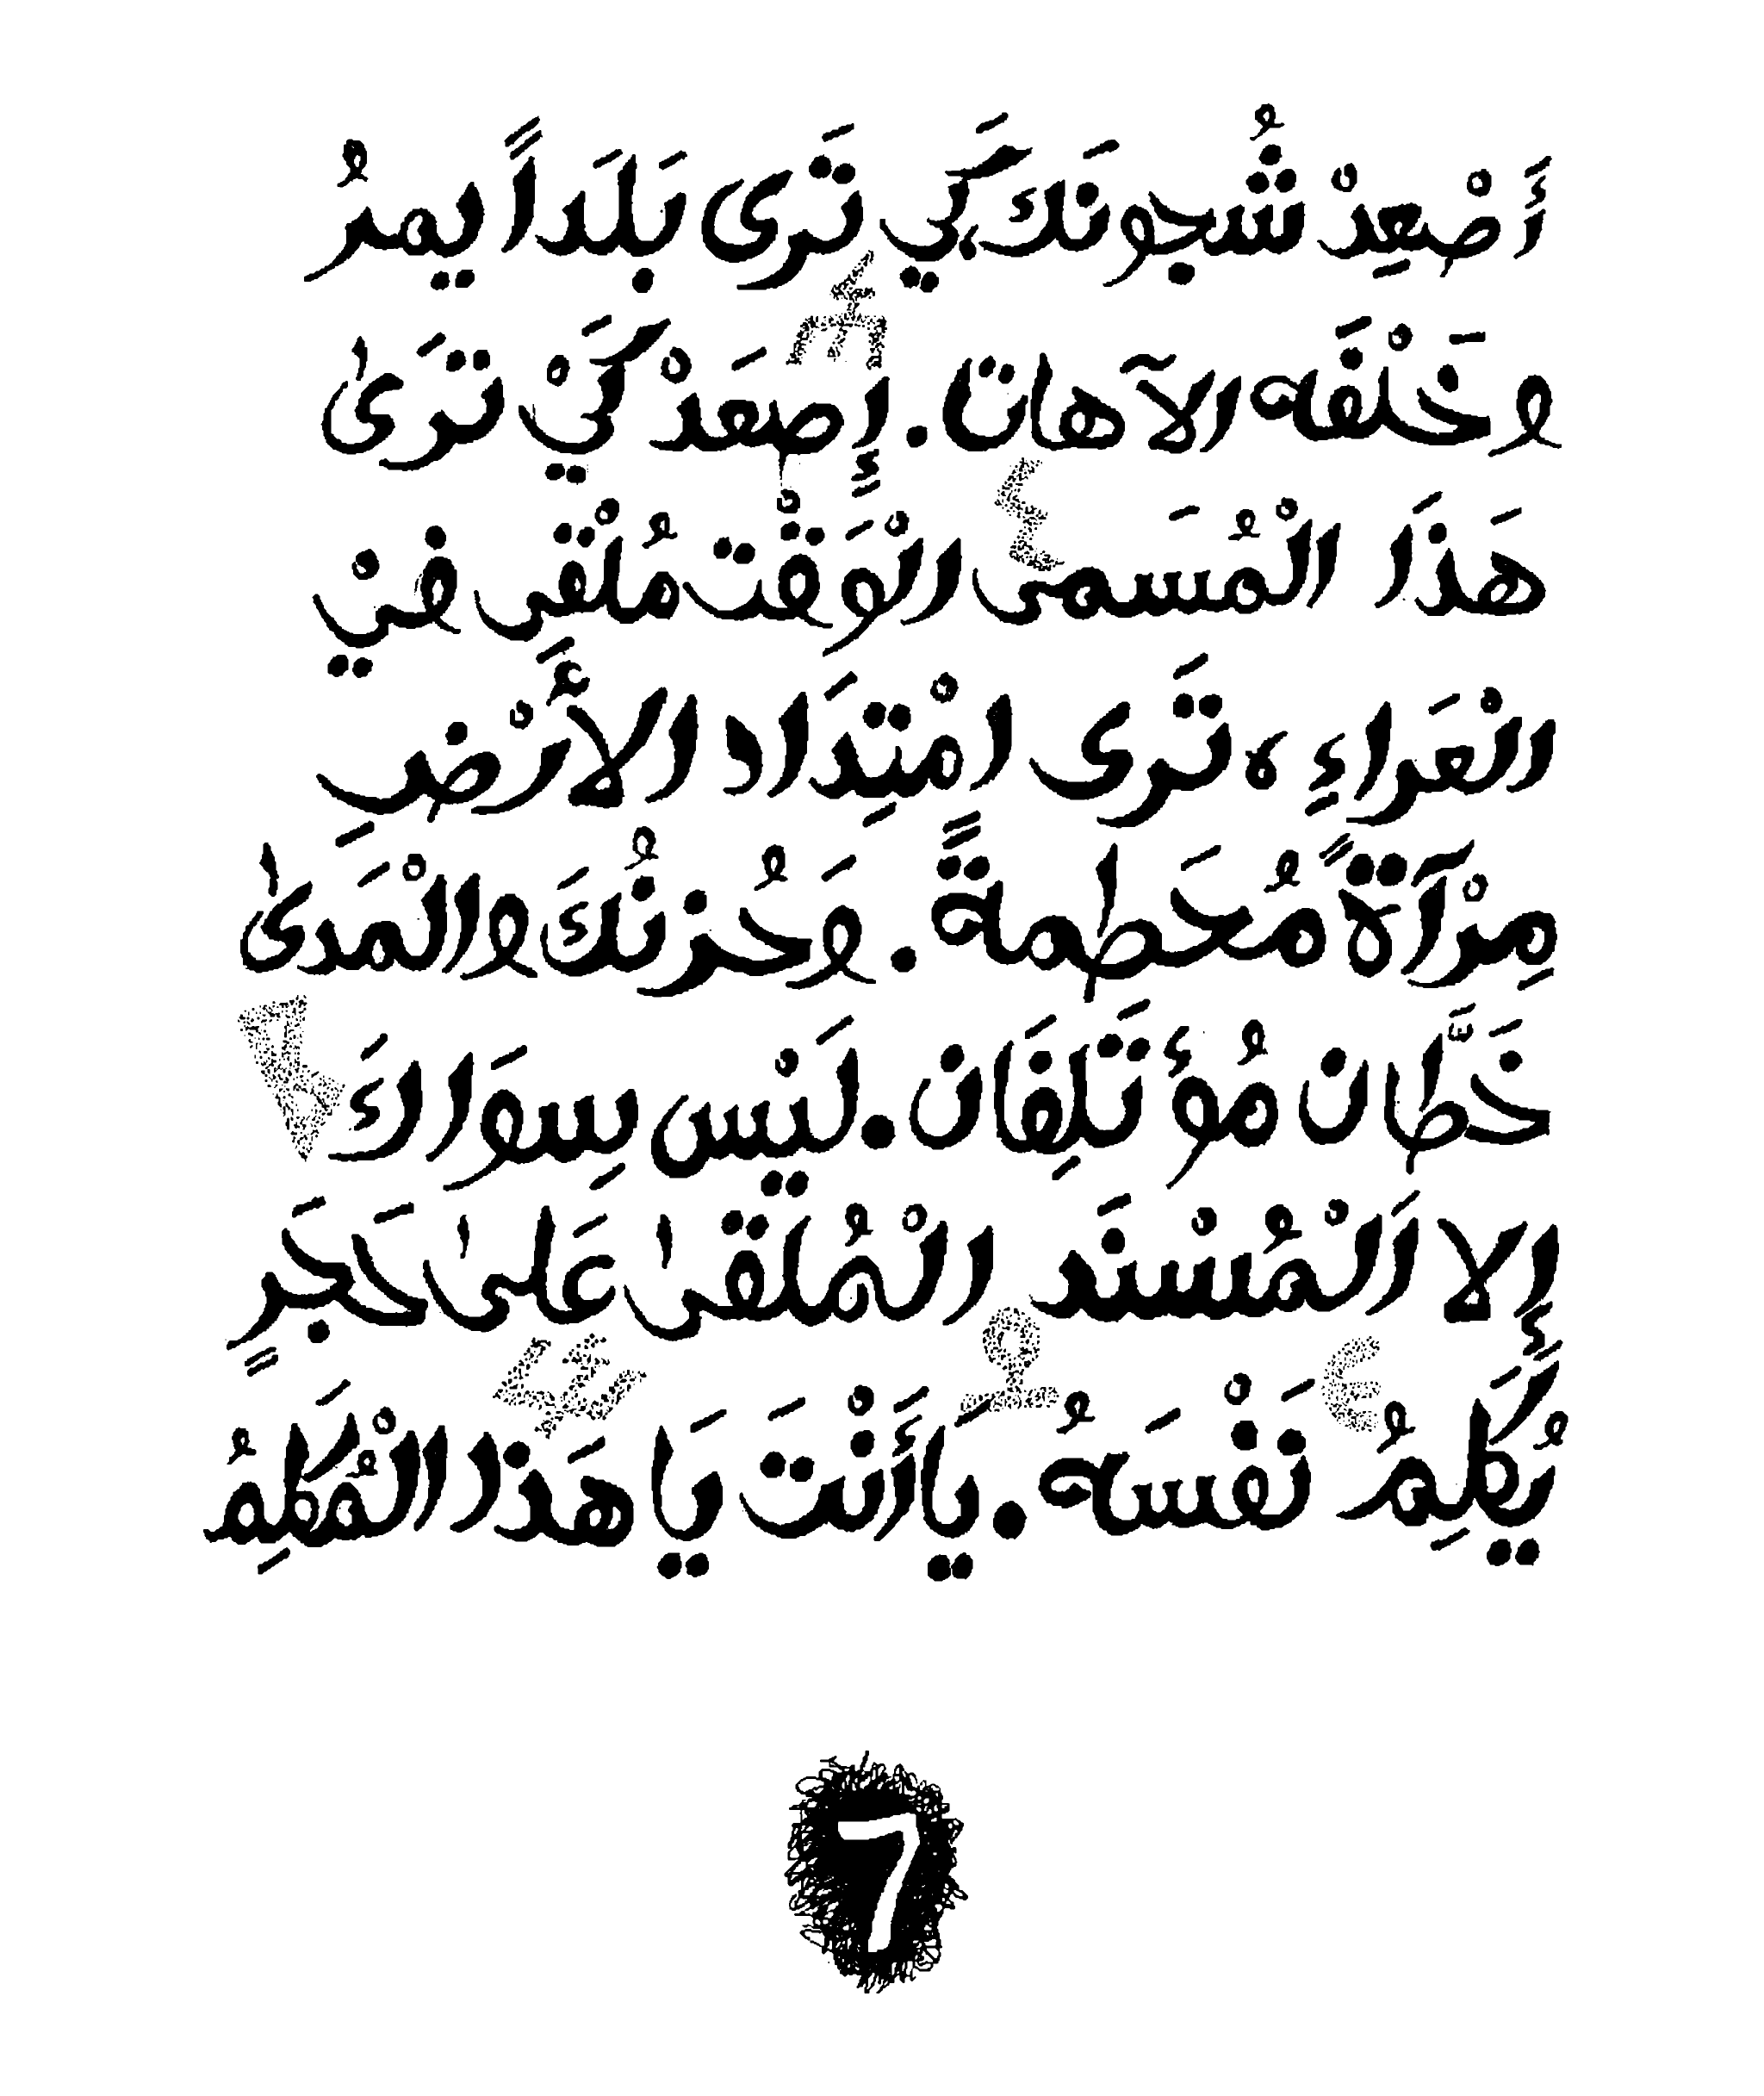 أَصْعِدْ شُجونَكَ كَي تَرى بَلَداً يمرُ
وخَلْفَه الآهات. إِصعَدْ كَيْ تَرَىٰ
هَذَا الْمُسَمى الْوَقْت مُلْقى فيْ
الْعَراءِ، تَرى امْتِدَاد الأَرْضِ
مِرْآةً مُحَطمةً. وَحُزنُكَ والْمَدىٰ
خَطَّان مُؤتَلِفَان. لَيْس سِوَاكَ
إِلا اَلْمُسْنَد الْمُلقىٰ عَلىٰ حَجَرٍ
يُكَلِمُ نَفْسَهُ. يَا أَنْتَ يَا هَذا الْمُكَلِمُ
7